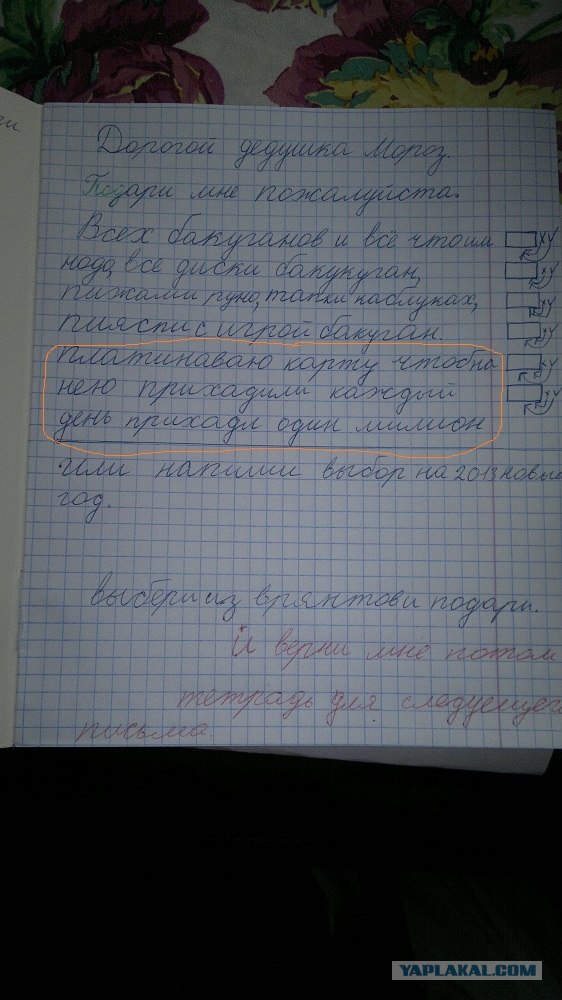 Дорогой дедушка Мороз.
Подари мне пожалуйста.
Всех бакуганов и всё что им
надо, все диски бакукуган,
пижами руно, тапки каблуках,
пияспи с игрой бакуган.
платинаваю карту чтоб на
нею прихадили каждый
день прихадл один милион
или напиши выбор на 2013 новый
год.
выбери из врянтов и подари.
И верни мне потом
тетрадь для следующего
письма.
YAPLAKAL.COM